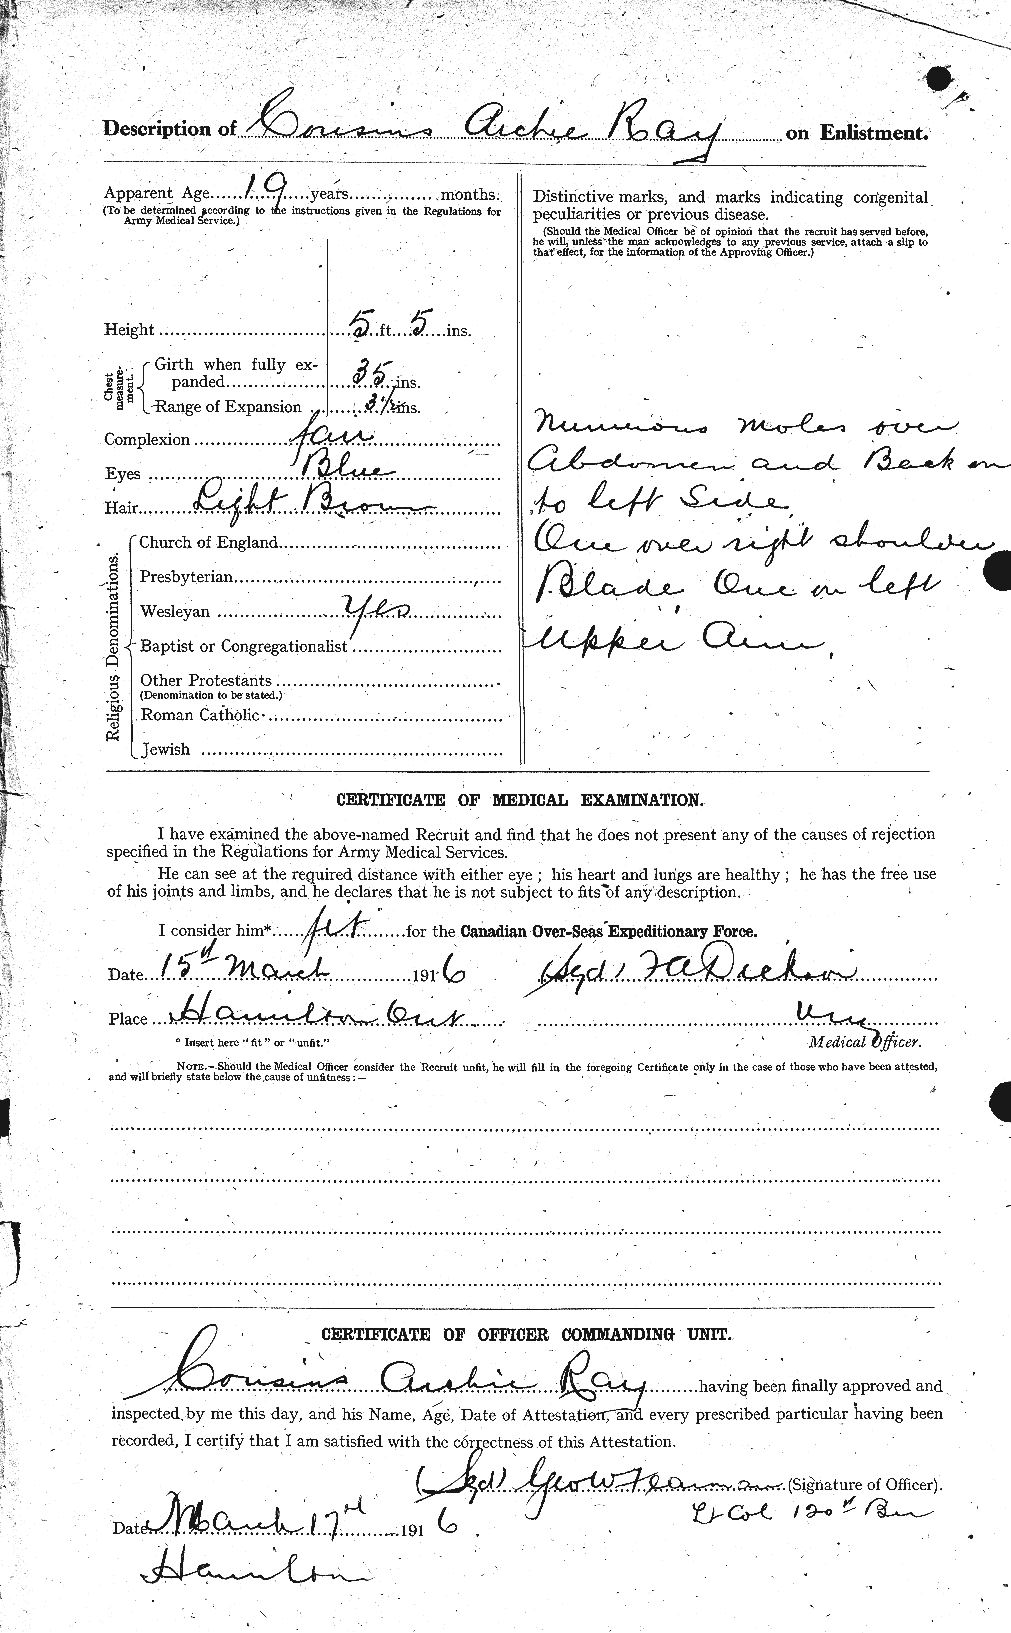 Description of Cousins Archie Ray on Enlistment.
Apparent Age 19 years months.
(To be determined according to the instructions given in the Regulations for
Army Medical Service.)
Height 5 ft. 5 ins.
Chest measurement.
Girth when fully ex-
panded 35 ins.
Range of Expansion 3½ ins.
Complexion fair
Eyes Blue
Hair Light Brown
Religious Denominations.
Church of England
Presbyterian
Wesleyan Yes
Baptist or Congregationalist
Other Protestants
(Denomination to be stated.)
Roman Catholic
Jewish
Distinctive marks, and marks indicating congenital
peculiarities or previous disease.
(Should the Medical Officer be of opinion that the recruit has served before,
he will, unless the man acknowledges to any previous service, attach a slip to
that effect, for the information of the Approving Officer.)
Numerous moles over
Abdomen and Back on
to left Side
One over right shoulder
Blade, One on left
Upper Arm,
CERTIFICATE OF MEDICAL EXAMINATION.
I have examined the above-named Recruit and find that he does not present any of the causes of rejection
specified in the Regulations for Army Medical Services.
He can see at the required distance with either eye; his heart and lungs are healthy; he has the free use
of his joints and limbs, and he declares that he is not subject to fits of any description.
I consider him* fit for the Canadian Over-Seas Expeditionary Force.
Date 15th March 1916 (Sgd) F A Dickson
Place Hamilton Ont
* Insert here "fit" or "unfit."
Medical Officer.
NOTE.—Should the Medical Officer consider the Recruit unfit, he will fill in the foregoing Certificate only in the case of those who have been attested,
and will briefly state below the cause of unfitness:—
CERTIFICATE OF OFFICER COMMANDING UNIT.
Cousins Archie Ray having been finally approved and
inspected by me this day, and his Name, Age, Date of Attestation, and every prescribed particular having been
recorded, I certify that I am satisfied with the correctness of this Attestation.
(Sgd) Geo W (Signature of Officer).
Lt Col 120th Bn
Date March 17 1916
Hamilton